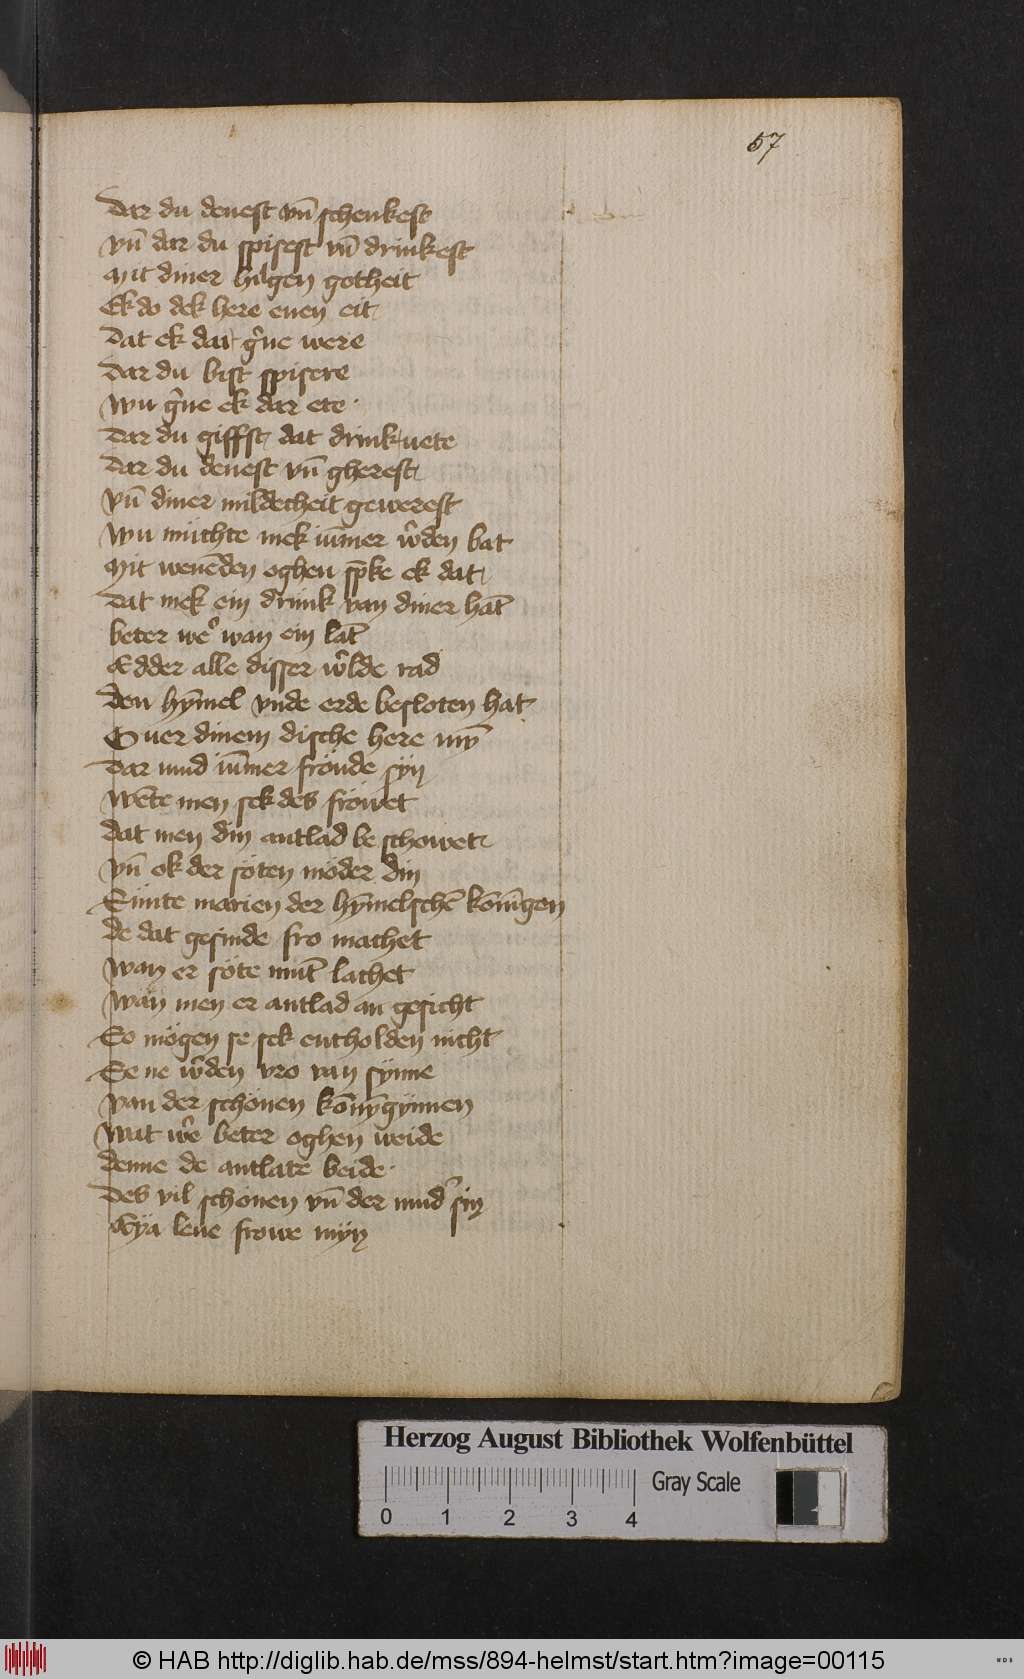 57
Dar du denest vn̄ schenkest
vn̄ dar du spisest vn̄ drinkest
Mit diner hilgen gotheit
Ek do dek here enen eit
Dat ek dar g᷑ne were
Dar du bist spisere
Wu g᷑ne ek dar ete
Dar du giffst dat drink vete
Dar du denest vn̄ gherest
vn̄ diner mildecheit gewerest
Wu müchte mek iūmer w᷑den bat
Mit wenēden oghen sp̄ke ek dat
Dat mek ein drink van diner hāt
beter we᷑ wan ein lāt
Edder alle disser w᷑lde rad
den hȳmel vnde erde besloten hat
Ouer dinem dische here mȳ
Dar mud iūmer fröude syn
Wēte men sek des fröwet
dat men din antlad be schowet
vn̄ ok der söten möder din
Sünte marien der hȳmelschē kōnīgen
de dat gesinde fro machet
wan er söte mūt lachet
wan men er antlad an gesicht
So mögen se sek entholden nicht
Se ne w᷑den vro van synne
van der schönen kōnȳgynnen
Wat w᷑e beter oghen weide
denne de antlate beide
Des vil schönen vn̄ der mud᷑ sin
Eya leue frowe myn
Herzog August Bibliothek Wolfenbüttel
Gray Scale
0 1 2 3 4
© HAB http://diglib.hab.de/mss/894-helmst/start.htm?image=00115